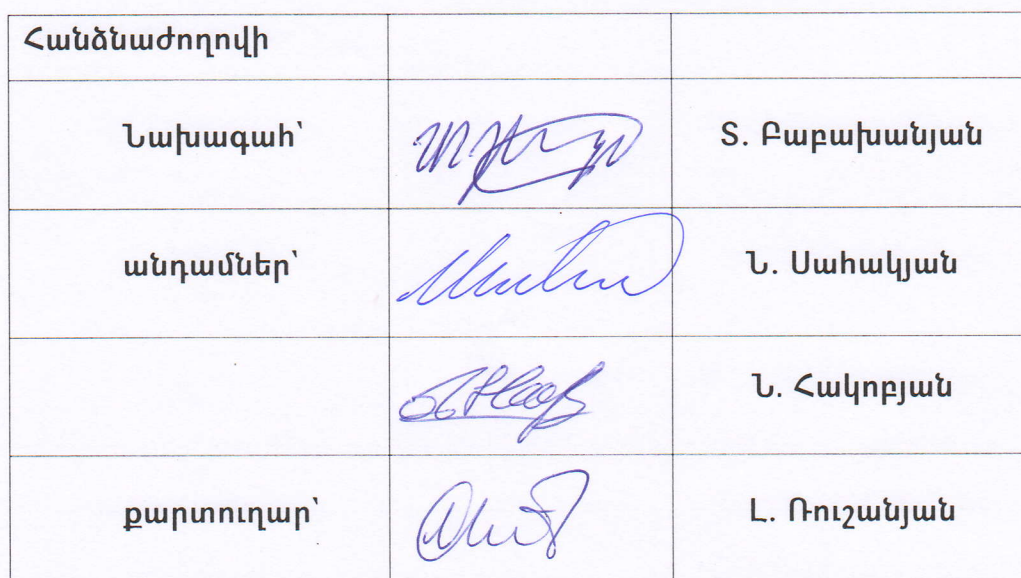 Հանձնաժողովի
Նախագահ՝ Տ. Բաբախանյան
անդամներ՝ Ն. Սահակյան
Ն. Հակոբյան
քարտուղար՝ Լ. Ռուշանյան